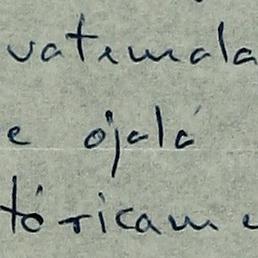 uatemala
e ojalá
tóricame